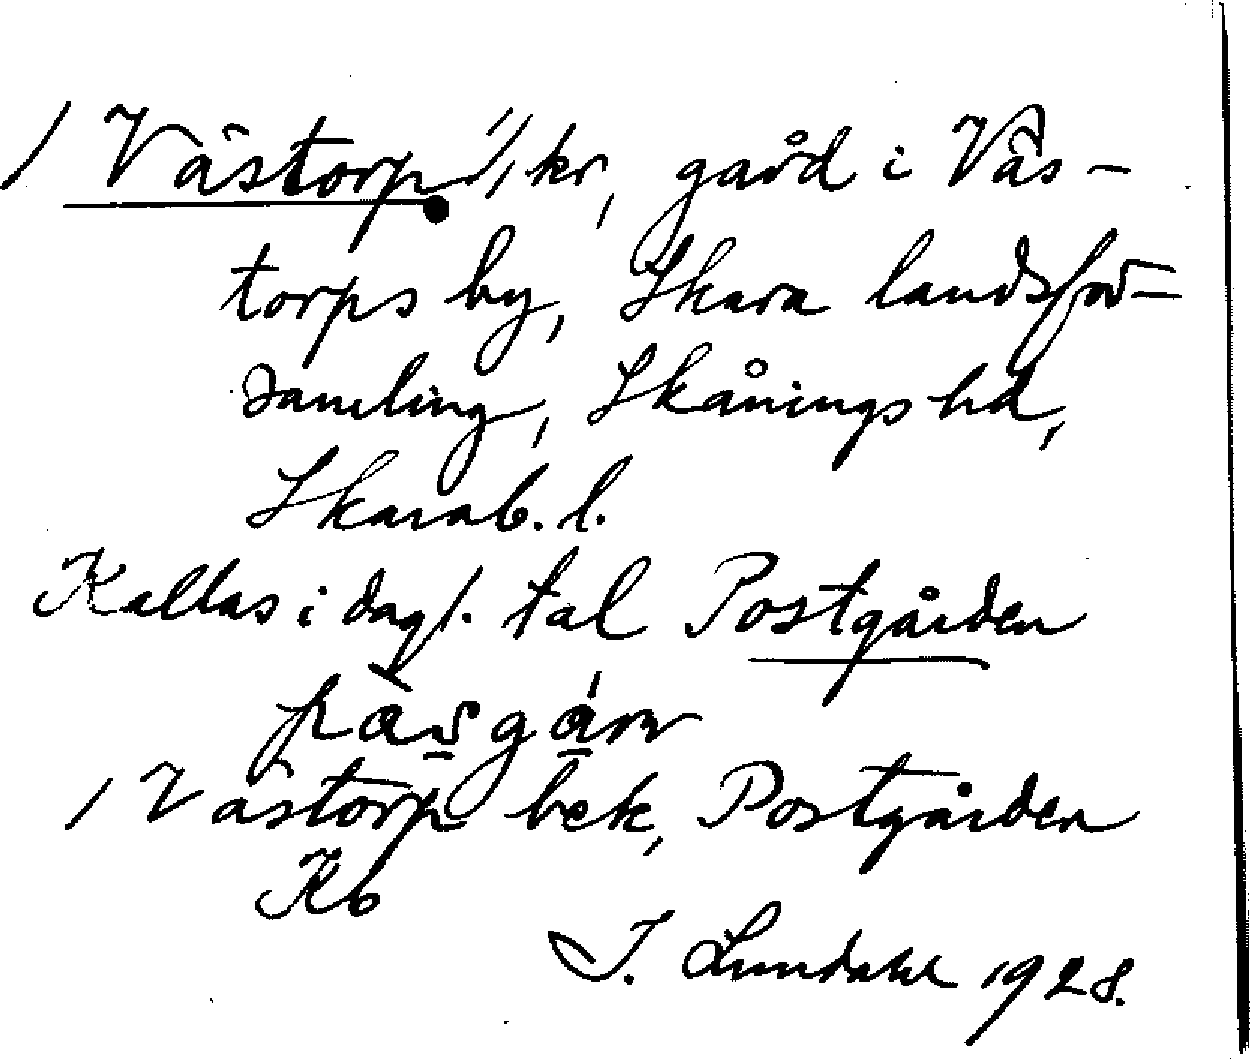 / Västorp 1/1 kr, gård i Väs-
torps by, Skara landsför-
samling, Skånings hd,
Skarab. l.
Kallas i dagl. tal Postgården
/ Västorp bek, Postgården
Kb
I. Lundahl 1928.